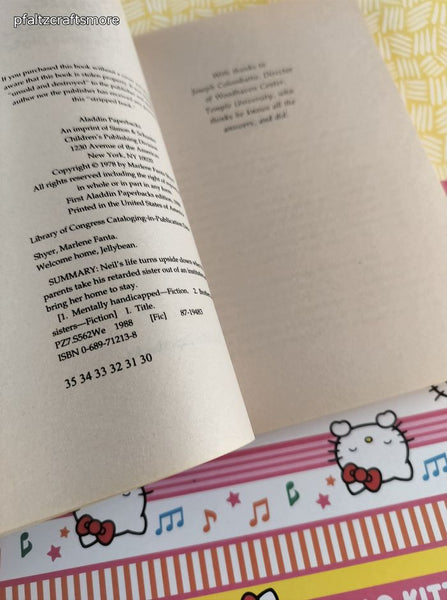 pfaltzcraftsmore
If you purchased this book without a cover
aware that this book is stolen property. It
"unsold and destroyed" to the publisher,
author nor the publisher has received
this "stripped book."
Aladdin Paperbacks
An imprint of Simon & Schuster
Children's Publishing Division
1230 Avenue of the Americas
New York, NY 10020
Copyright © 1978 by Marlene Fanta
All rights reserved including the right of
in whole or in part in any
First Aladdin Paperbacks edition,
Printed in the United States of America
Library of Congress Cataloging-in-Publication
Shyer, Marlene Fanta.
Welcome home, Jellybean.
SUMMARY: Neil's life turns upside down
parents take his retarded sister out of an
bring her home to stay.
[1. Mentally handicapped—Fiction. 2.
sisters—Fiction] I. Title.
PZ7.S562We 1988 [Fic] 87-19483
ISBN 0-689-71213-8
35 34 33 32 31 30
With thanks to
Joseph Colombatto, Director
of Woodhaven Center,
Temple University, who
thinks he knows all the
answers, and did.
KITT